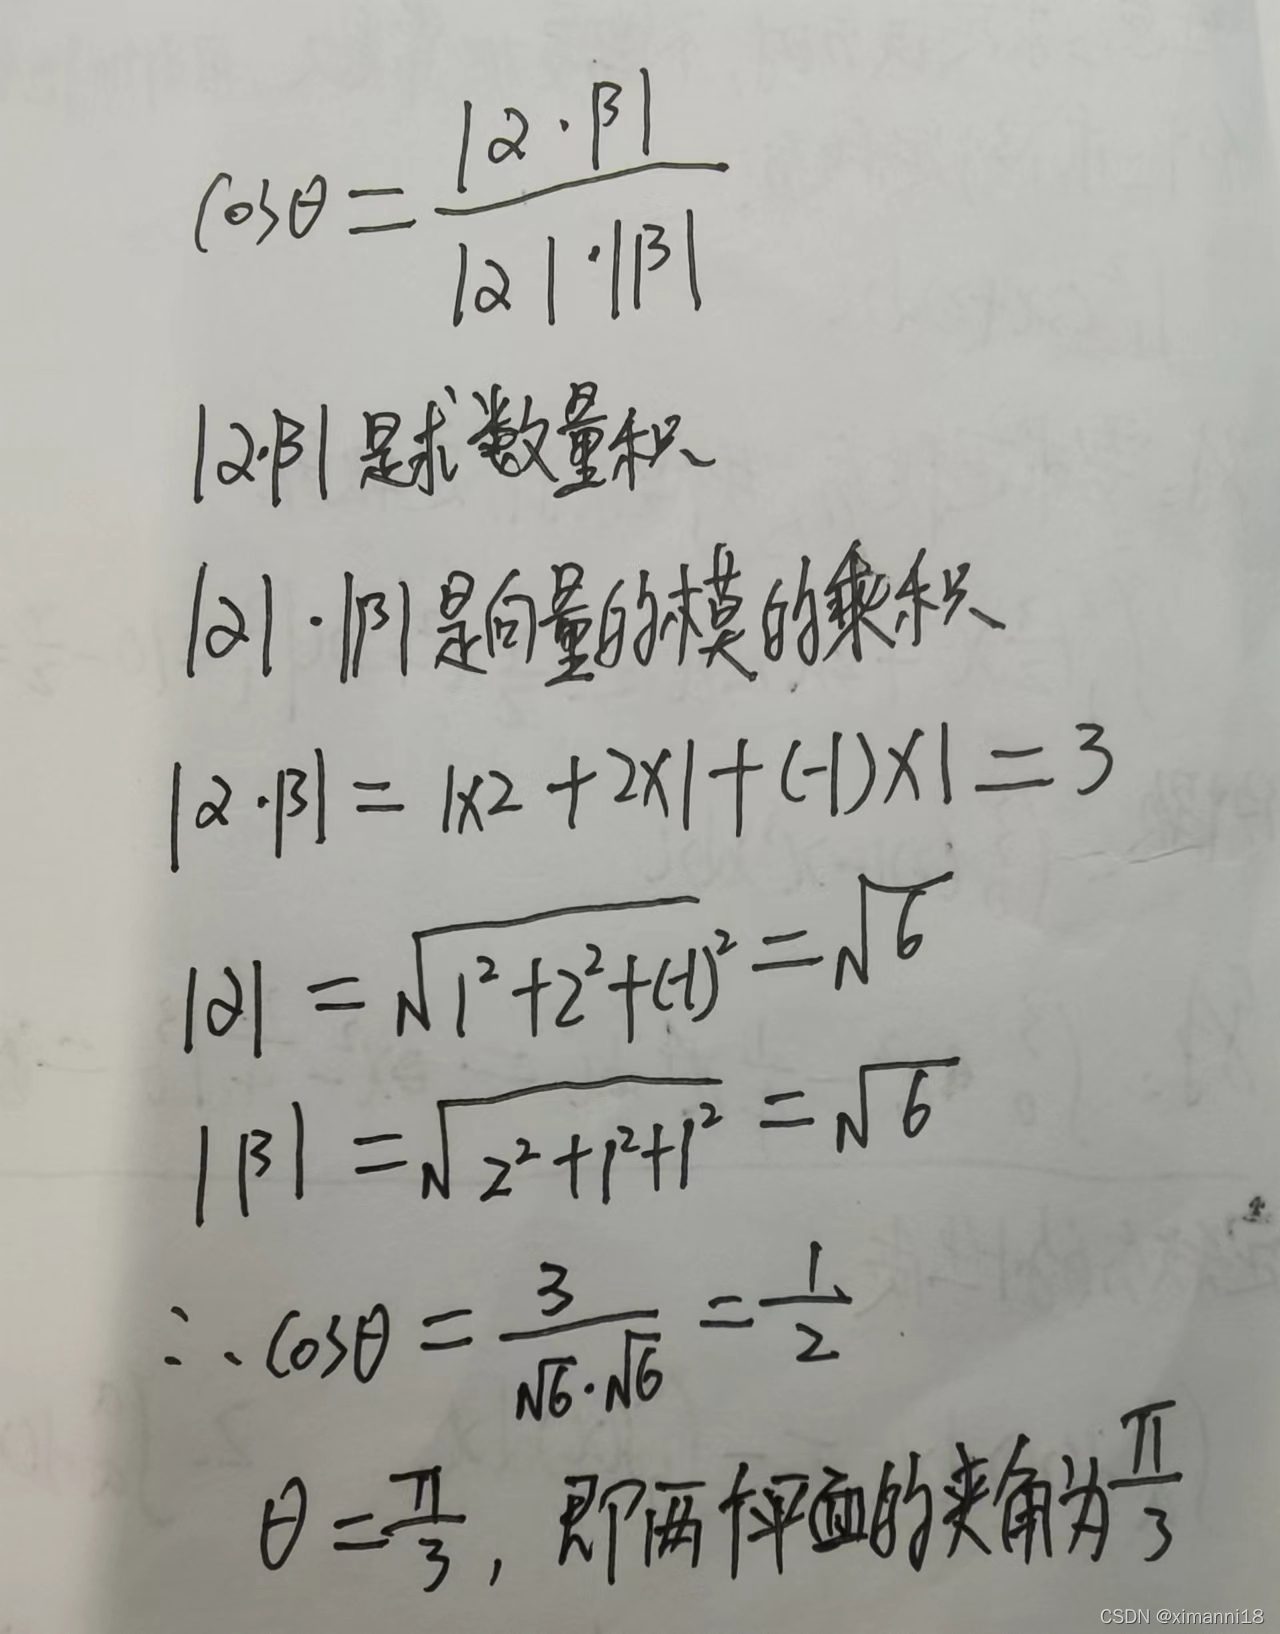 cosθ = |α·β| / |α|·|β|
|α·β| 是求数量积
|α|·|β| 是向量的模的乘积
|α·β| = 1×2 + 2×1 + (-1)×1 = 3
|α| = √(1²+2²+(-1)²) = √6
|β| = √(2²+1²+1²) = √6
∴ cosθ = 3 / √6·√6 = 1/2
θ = π/3, 即两个平面的夹角为 π/3
CSDN @ximanni18